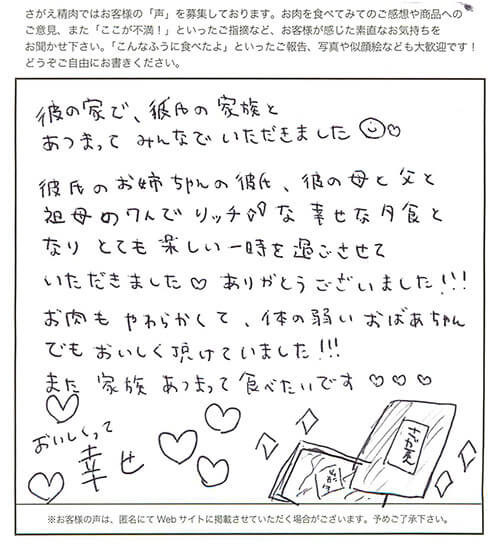 さがえ精肉ではお客様の「声」を募集しております。お肉を食べてみてのご感想や商品への
ご意見、また「ここが不満！」といったご指摘など、お客様が感じた素直なお気持ちを
お聞かせ下さい。「こんなふうに食べたよ」といったご報告、写真や似顔絵なども大歓迎です！
どうぞご自由にお書きください。
彼の家で、彼氏の家族と
あつまって みんなでいただきました
彼氏のお姉ちゃんの彼氏、彼の母と父と
祖母の7人で リッチな幸せな夕食と
なり とても楽しい一時を過ごさせて
いただきました♡ ありがとうございました!!!
お肉も やわらかくて、体の弱い おばあちゃん
でも おいしく頂けていました!!!
また 家族 あつまって食べたいです ♡♡♡
おいしくって
幸せ
さがえ
※お客様の声は、匿名にてWebサイトに掲載させていただく場合がございます。予めご了承下さい。